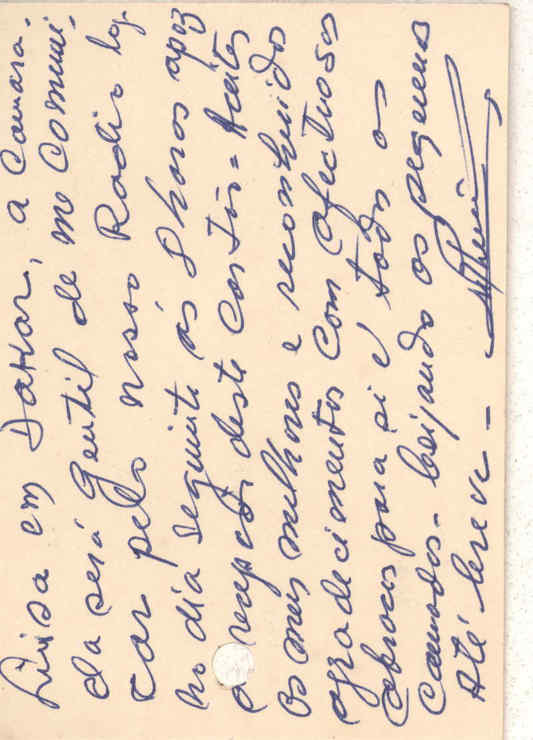 Luisa em Dakar, a Camara-
da será gentil de me comuni-
car pelo nosso Radio logo
no dia seguinte ás 8 horas apoz
a recepção deste cartão = Aceites
os meus melhores e reconhecidos
agradecimentos com afectuosos
abraços para si e todos os
Camaradas - beijando os pequenos
Até breve -